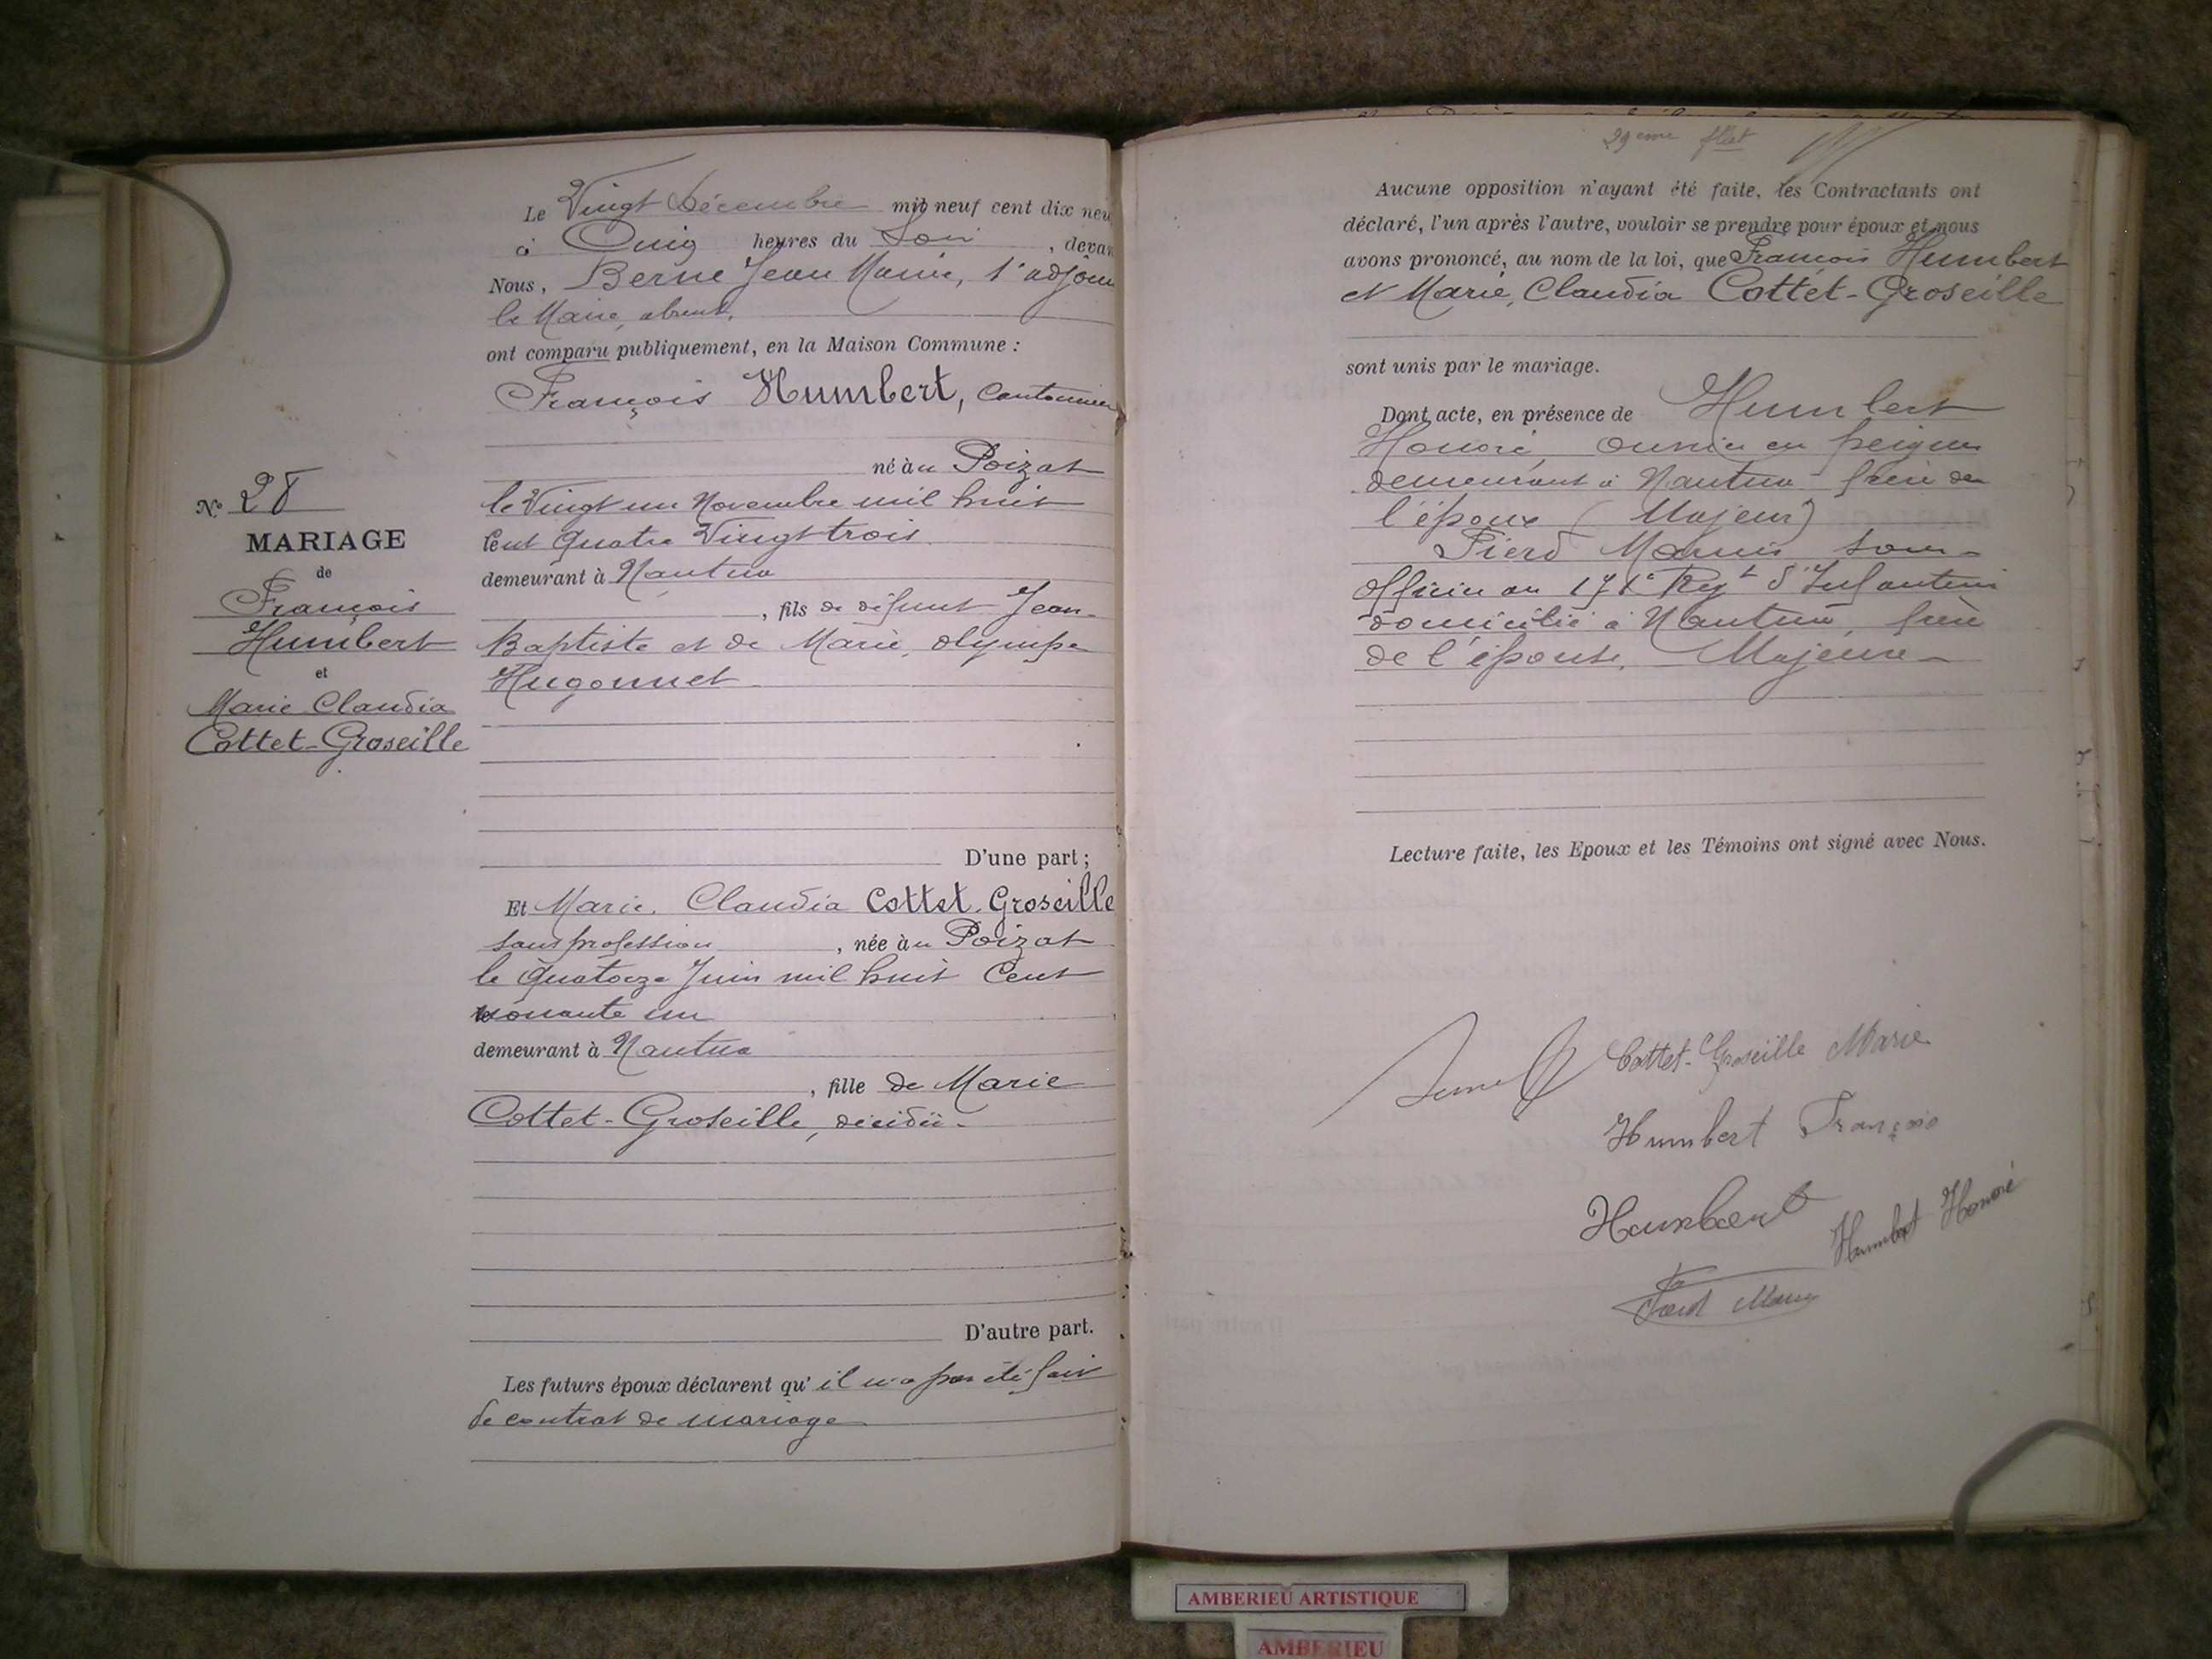 Le Vingt Décembre mil neuf cent dix neu
à Onig heures du Soir, devan
Nous, Berne Jean Marie, 1er adjoin
le Maire, absent,
ont comparu publiquement, en la Maison Commune :
François Humbert, Cantonnier
né à u Poizat
le Vingt un Novembre mil huit
Cent Quatre Vingt trois
demeurant à Nantua
, fils de défunt Jean-
Baptiste et de Marie, olympe
Hugonnet
D'une part ;
Et Marie, Claudia Cottet-Groseille
sans profession, née à u Poizat
le Quatorze Juin mil huit Cent
nonante un
demeurant à Nantua
, fille de Marie
Cottet-Groseille, décédée
D'autre part.
Les futurs époux déclarent qu'il n'a pas été fait
de contrat de mariage
No 28
MARIAGE
de
François
Humbert
et
Marie Claudia
Cottet-Groseille
29eme
Aucune opposition n'ayant été faite, les Contractants ont
déclaré, l'un après l'autre, vouloir se prendre pour époux et nous
avons prononcé, au nom de la loi, que François Humbert
et Marie, Claudia Cottet-Groseille
sont unis par le mariage.
Dont acte, en présence de Humbert
Honoré, ouvrier en peignes
demeurant à Nantua frère de
l'époux (Majeur)
Marius sous-
Officier au 171e Regt d'Infanterie
domicilié à Nantua, frère
de l'épouse, Majeure
Lecture faite, les Epoux et les Témoins ont signé avec Nous.
Cottet-Groseille Marie
Humbert François
Humbert
Humbert Honoré
AMBERIEU ARTISTIQUE
AMBERIEU